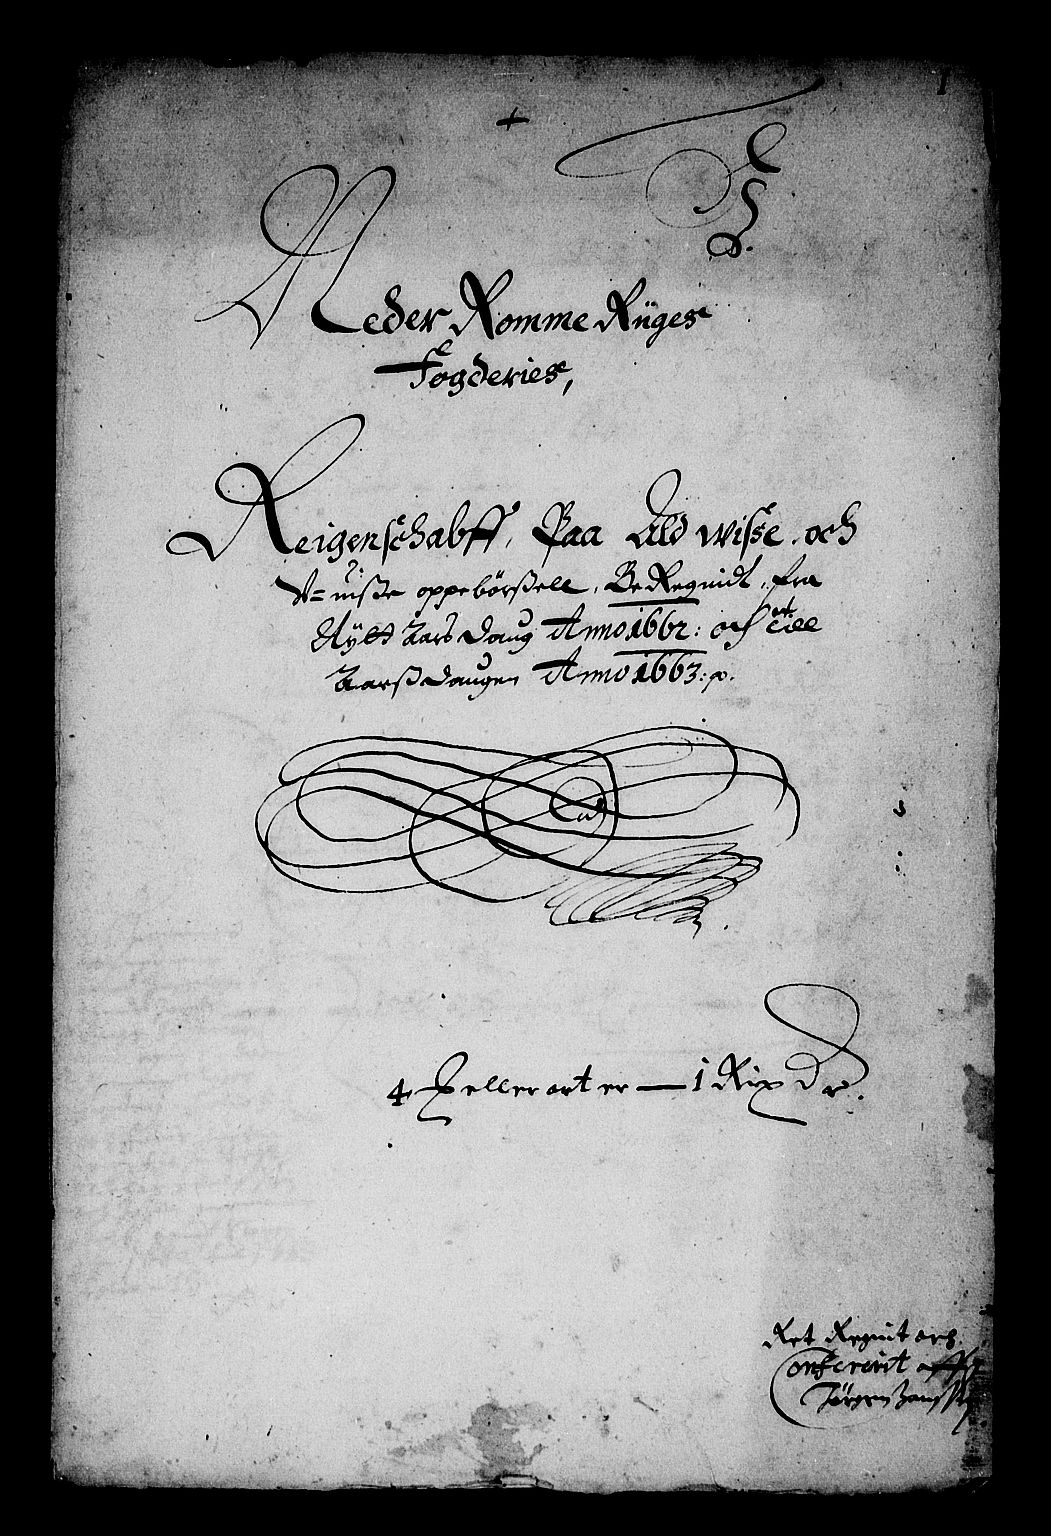 1
Neder Romme Riiges
Fogderies,
Reigenschabff, Paa Ald wisse. och
V=uisse oppebörsell, BeRegnidt, fra
Nÿtt Aars daug Anno 1662: och till
Aarss daugen Anno 1663:
4 Hellerort er — 1 Rix Dr.
Ret Regnit och
Confererit aff
Jörgen Hans